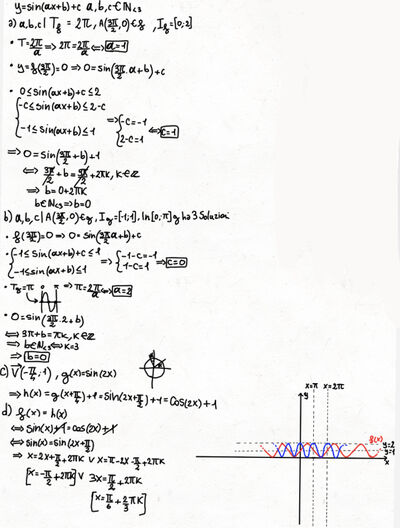 y=sin(ax+b)+c a,b,c∈ℕ<3
a) a,b,c | T_f = 2π, A(3π/2,0)∈f, I_f=[0;2]
• T=2π/a ⇒ 2π=2π/a ⇔ a=1
• y=f(3π/2)=0 ⇒ 0=sin(3π/2·a+b)+c
• 0≤sin(ax+b)+c≤2
{-c≤sin(ax+b)≤2-c
-1≤sin(ax+b)≤1 ⇒ {-c=-1 2-c=1 ⇔ c=1
⇒ 0=sin(3π/2+b)+1
⇔ 3π/2+b=3π/2+2πk, k∈ℤ
⇒ b=0+2πk
b∈ℕ<3 ⇒ b=0
b) a,b,c | A(3π/2,0)∈g, I_g=[-1;1], In[0,π] g ha 3 Soluzioni
• g(3π/2)=0 ⇒ 0=sin(3π/2a+b)+c
• {-1≤sin(ax+b)+c≤1
-1≤sin(ax+b)≤1 ⇒ {-1-c=-1 1-c=1 ⇒ c=0
• T_g=π 0 π ⇒ π=2π/a ⇔ a=2
• 0=sin(3π/2·2+b)
⇔ 3π+b=πk, k∈ℤ
⇒ b∈ℕ<3 ⇔ k=3
⇒ b=0
c) V(-π/4;1), g(x)=sin(2x)
⇒ h(x)=g(x+π/4)+1=sin(2x+π/2)+1=cos(2x)+1
d) f(x)=h(x)
⇔ sin(x)+1=cos(2x)+1
⇔ sin(x)=sin(2x+π/2)
⇒ x=2x+π/2+2πk ∨ x=π-2x-π/2+2πk
[x=-π/2+2πk] ∨ 3x=π/2+2πk
[x=π/6+2/3πk]
x=π x=2π
y
f(x)
y=2
y=1
x